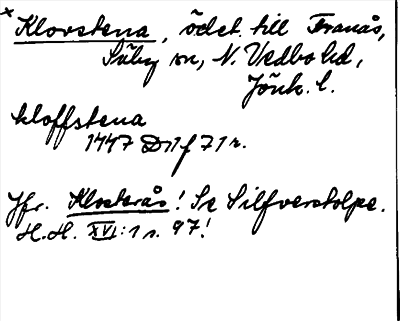 × Klovstena, ödet. till Tranås,
Säby sn, N. Vedbo hd,
Jönk. l.
kloffstena
1447 Dr1f 71 r.
Jfr. Klosterås! Se Silfverstolpe.
H.H. XVI:1 s. 97!